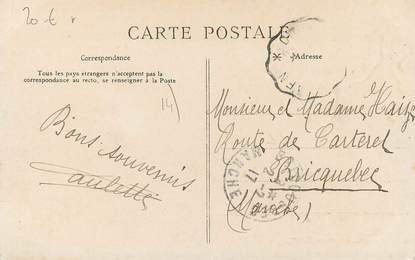 20 €
CARTE POSTALE
Correspondance
Adresse
Tous les pays étrangers n'acceptent pas la
correspondance au recto, se renseigner à la Poste
14
Bons souvenirs
Paulette
Monsieur et Madame Haize
Route de Carteret
Bricquebec
(Manche)
MANCHE